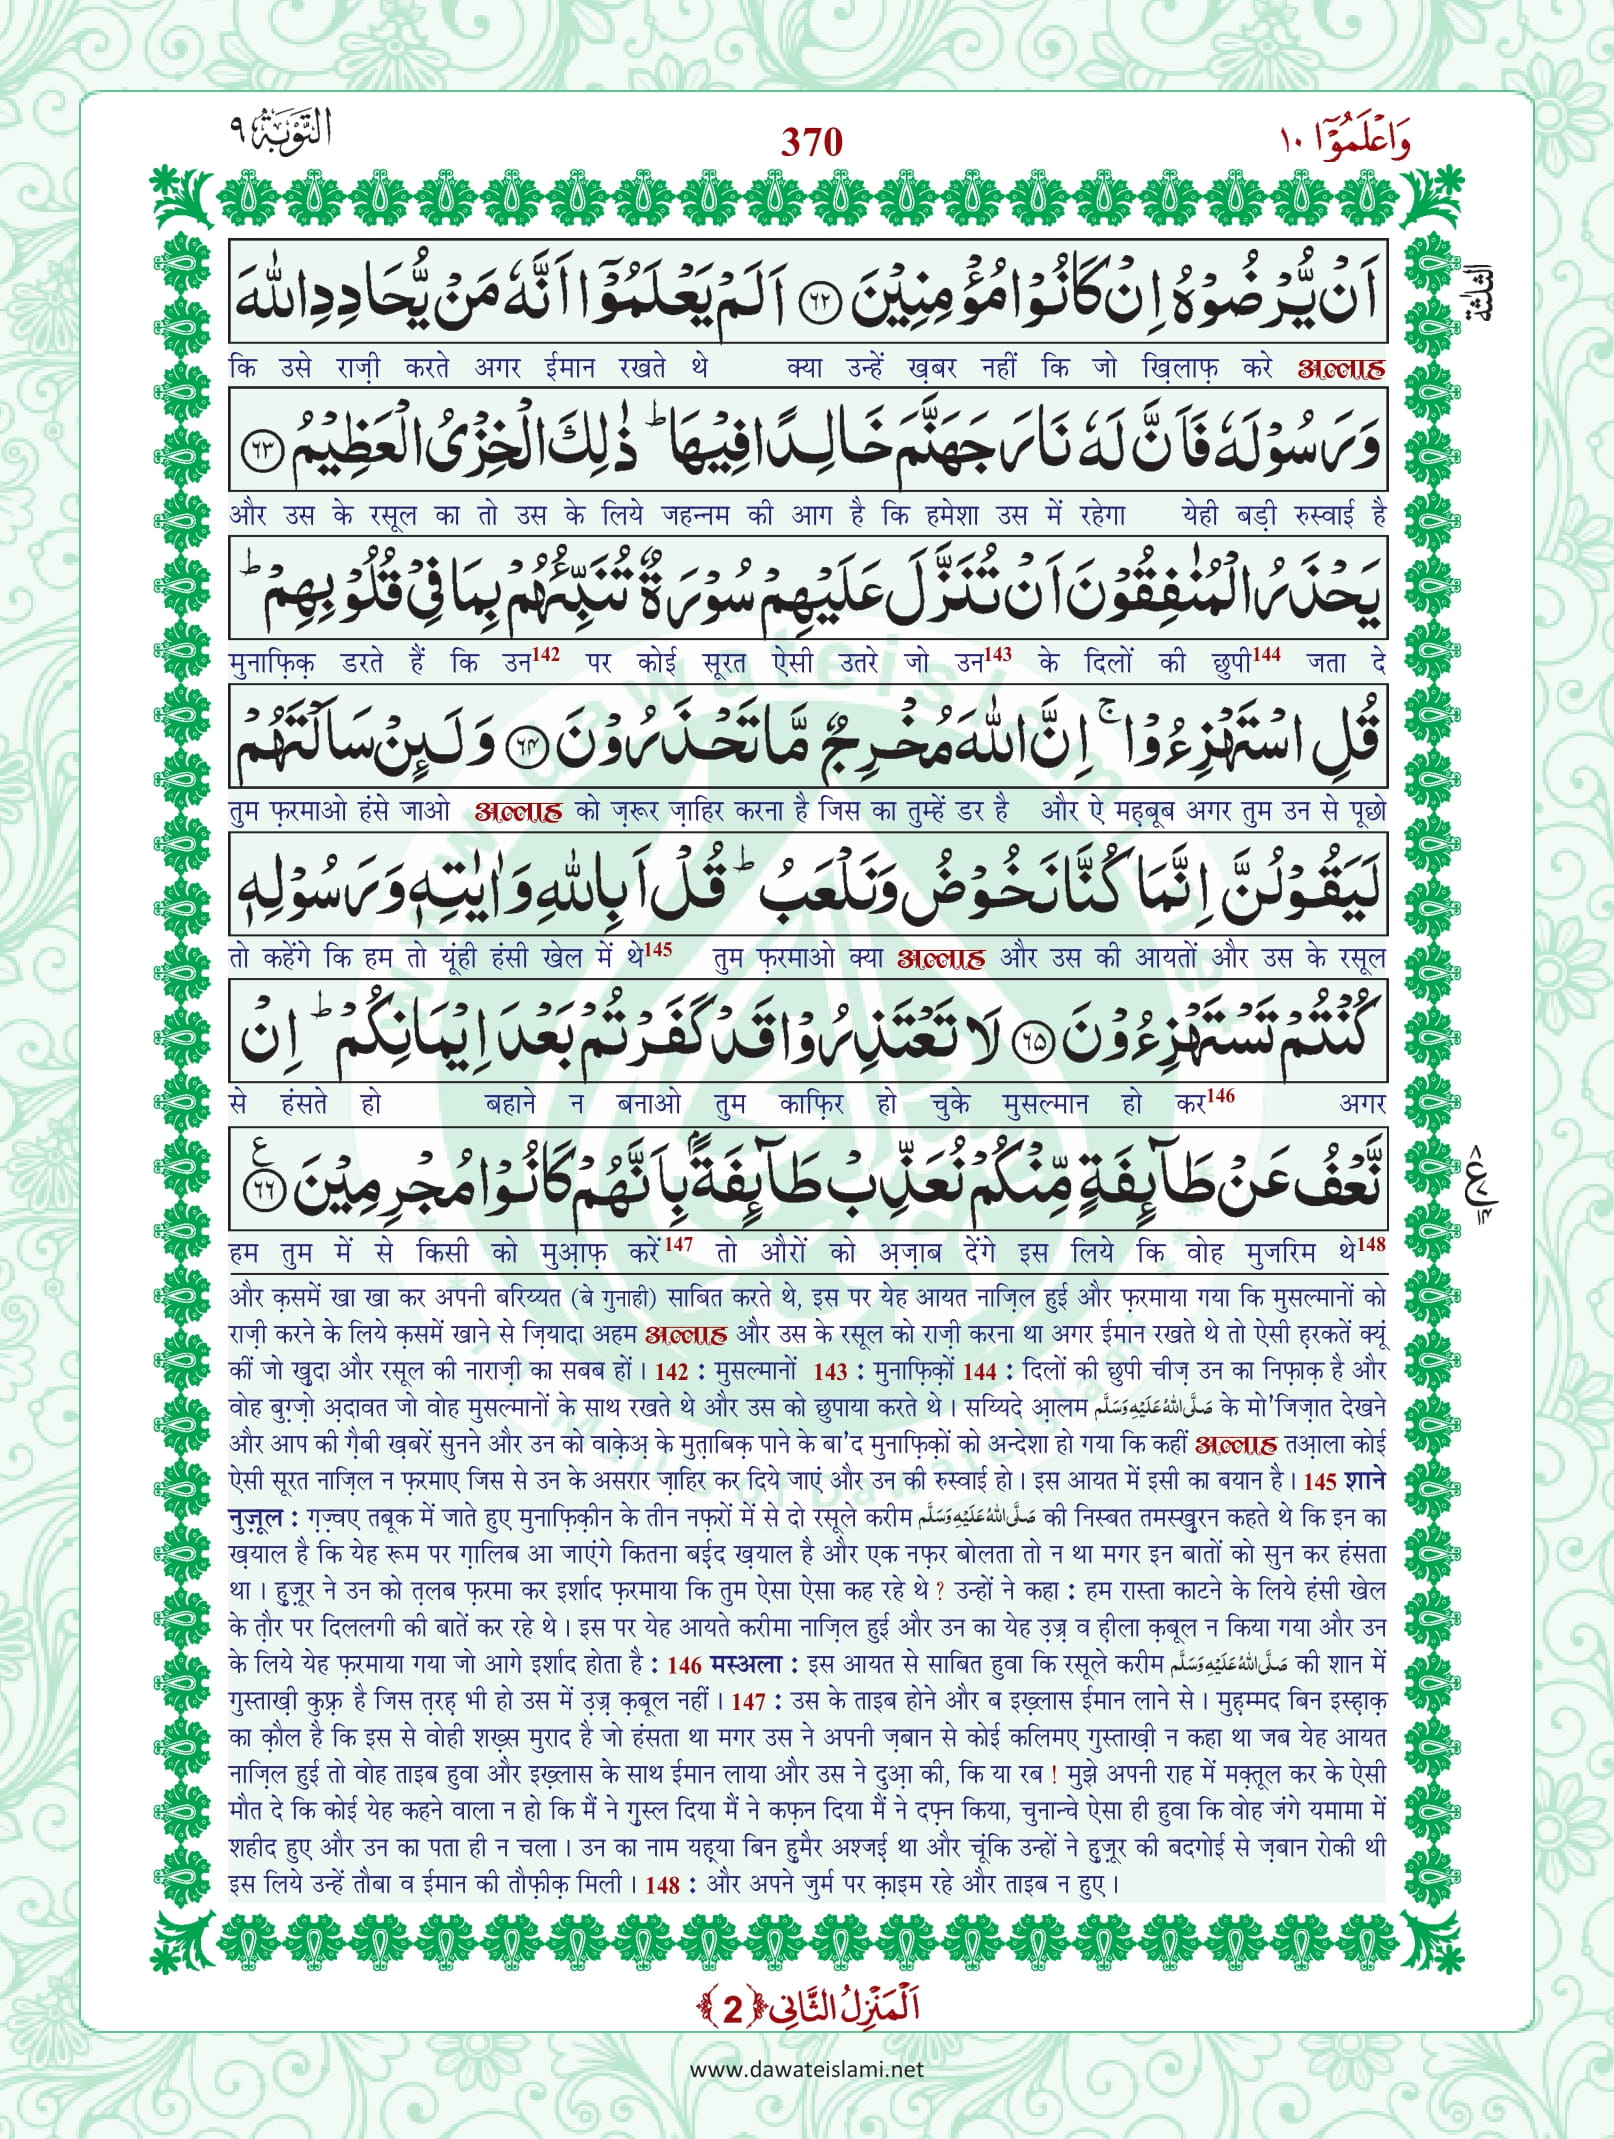 التوبة ٩
370
وَاعْلَمُوْۤا ١٠
اَنْ یُّرْضُوْهُ اِنْ كَانُوْا مُؤْمِنِیْنَ ﴿۶۲﴾ اَلَمْ یَعْلَمُوْۤا اَنَّهٗ مَنْ یُّحَادِدِ اللّٰهَ
الثلثة
कि उसे राज़ी करते अगर ईमान रखते थे क्या उन्हें ख़बर नहीं कि जो ख़िलाफ़ करे अल्लाह
وَ رَسُوْلَهٗ فَاَنَّ لَهٗ نَارَ جَهَنَّمَ خَالِدًا فِیْهَا ؕ ذٰلِكَ الْخِزْیُ الْعَظِیْمُ ﴿۶۳﴾
और उस के रसूल का तो उस के लिये जहन्नम की आग है कि हमेशा उस में रहेगा येही बड़ी रुस्वाई है
یَحْذَرُ الْمُنٰفِقُوْنَ اَنْ تُنَزَّلَ عَلَیْهِمْ سُوْرَةٌ تُنَبِّئُهُمْ بِمَا فِیْ قُلُوْبِهِمْ ؕ
मुनाफ़िक़ डरते हैं कि उन142 पर कोई सूरत ऐसी उतरे जो उन143 के दिलों की छुपी144 जता दे
قُلِ اسْتَهْزِءُوْا ۚ اِنَّ اللّٰهَ مُخْرِجٌ مَّا تَحْذَرُوْنَ ﴿۶۴﴾ وَ لَىِٕنْ سَاَلْتَهُمْ
तुम फ़रमाओ हंसे जाओ अल्लाह को ज़रूर ज़ाहिर करना है जिस का तुम्हें डर है और ऐ महबूब अगर तुम उन से पूछो
لَیَقُوْلُنَّ اِنَّمَا كُنَّا نَخُوْضُ وَ نَلْعَبُ ؕ قُلْ اَبِاللّٰهِ وَ اٰیٰتِهٖ وَ رَسُوْلِهٖ
तो कहेंगे कि हम तो यूंही हंसी खेल में थे145 तुम फ़रमाओ क्या अल्लाह और उस की आयतों और उस के रसूल
كُنْتُمْ تَسْتَهْزِءُوْنَ ﴿۶۵﴾ لَا تَعْتَذِرُوْا قَدْ كَفَرْتُمْ بَعْدَ اِیْمَانِكُمْ ؕ اِنْ
से हंसते हो बहाने न बनाओ तुम काफ़िर हो चुके मुसल्मान हो कर146 अगर
نَّعْفُ عَنْ طَآىِٕفَةٍ مِّنْكُمْ نُعَذِّبْ طَآىِٕفَةًۢ بِاَنَّهُمْ كَانُوْا مُجْرِمِیْنَ ﴿۶۶﴾ ع
हम तुम में से किसी को मुआ़फ़ करें147 तो औरों को अ़ज़ाब देंगे इस लिये कि वोह मुजरिम थे148
और क़समें खा खा कर अपनी बरिय्यत (बे गुनाही) साबित करते थे, इस पर येह आयत नाज़िल हुई और फ़रमाया गया कि मुसल्मानों को
राज़ी करने के लिये क़समें खाने से ज़ियादा अहम अल्लाह और उस के रसूल को राज़ी करना था अगर ईमान रखते थे तो ऐसी ह़रकतें क्यूं
कीं जो ख़ुदा और रसूल की नाराज़ी का सबब हों। 142 : मुसल्मानों 143 : मुनाफ़िक़ों 144 : दिलों की छुपी चीज़ उन का निफ़ाक़ है और
वोह बुग़्ज़ो अ़दावत जो वोह मुसल्मानों के साथ रखते थे और उस को छुपाया करते थे। सय्यिदे आ़लम صَلَّى اللهُ عَلَيْهِ وَسَلَّم के मो'जिज़ात देखने
और आप की ग़ैबी ख़बरें सुनने और उन को वाक़ेअ़ के मुत़ाबिक़ पाने के बा'द मुनाफ़िक़ों को अन्देशा हो गया कि कहीं अल्लाह तआ़ला कोई
ऐसी सूरत नाज़िल न फ़रमाए जिस से उन के असरार ज़ाहिर कर दिये जाएं और उन की रुस्वाई हो। इस आयत में इसी का बयान है। 145 शाने
नुज़ूल : ग़ज़्वए तबूक में जाते हुए मुनाफ़िक़ीन के तीन नफ़रों में से दो रसूले करीम صَلَّى اللهُ عَلَيْهِ وَسَلَّم की निस्बत तमस्ख़ुरन कहते थे कि इन का
ख़याल है कि येह रूम पर ग़ालिब आ जाएंगे कितना बई़द ख़याल है और एक नफ़र बोलता तो न था मगर इन बातों को सुन कर हंसता
था। हु़ज़ूर ने उन को त़लब फ़रमा कर इर्शाद फ़रमाया कि तुम ऐसा ऐसा कह रहे थे ? उन्हों ने कहा : हम रास्ता काटने के लिये हंसी खेल
के त़ौर पर दिललगी की बातें कर रहे थे। इस पर येह आयते करीमा नाज़िल हुई और उन का येह उ़ज़्र व ह़ीला क़बूल न किया गया और उन
के लिये येह फ़रमाया गया जो आगे इर्शाद होता है : 146 मस्अला : इस आयत से साबित हुवा कि रसूले करीम صَلَّى اللهُ عَلَيْهِ وَسَلَّم की शान में
गुस्ताख़ी कुफ़्र है जिस त़रह़ भी हो उस में उ़ज़्र क़बूल नहीं। 147 : उस के ताइब होने और ब इख़्लास ईमान लाने से। मुह़म्मद बिन इस्ह़ाक़
का क़ौल है कि इस से वोही शख़्स मुराद है जो हंसता था मगर उस ने अपनी ज़बान से कोई कलिमए गुस्ताख़ी न कहा था जब येह आयत
नाज़िल हुई तो वोह ताइब हुवा और इख़्लास के साथ ईमान लाया और उस ने दुआ़ की, कि या रब ! मुझे अपनी राह में मक़्तूल कर के ऐसी
मौत दे कि कोई येह कहने वाला न हो कि मैं ने ग़ुस्ल दिया मैं ने कफ़न दिया मैं ने दफ़्न किया, चुनान्चे ऐसा ही हुवा कि वोह जंगे यमामा में
शहीद हुए और उन का पता ही न चला। उन का नाम यह़्या बिन हु़मैर अश्जई़ था और चूंकि उन्हों ने हु़ज़ूर की बदगोई से ज़बान रोकी थी
इस लिये उन्हें तौबा व ईमान की तौफ़ीक़ मिली। 148 : और अपने जुर्म पर क़ाइम रहे और ताइब न हुए।
اَلْمَنْزِلُ الثَّانِي ﴿2﴾
www.dawateislami.net